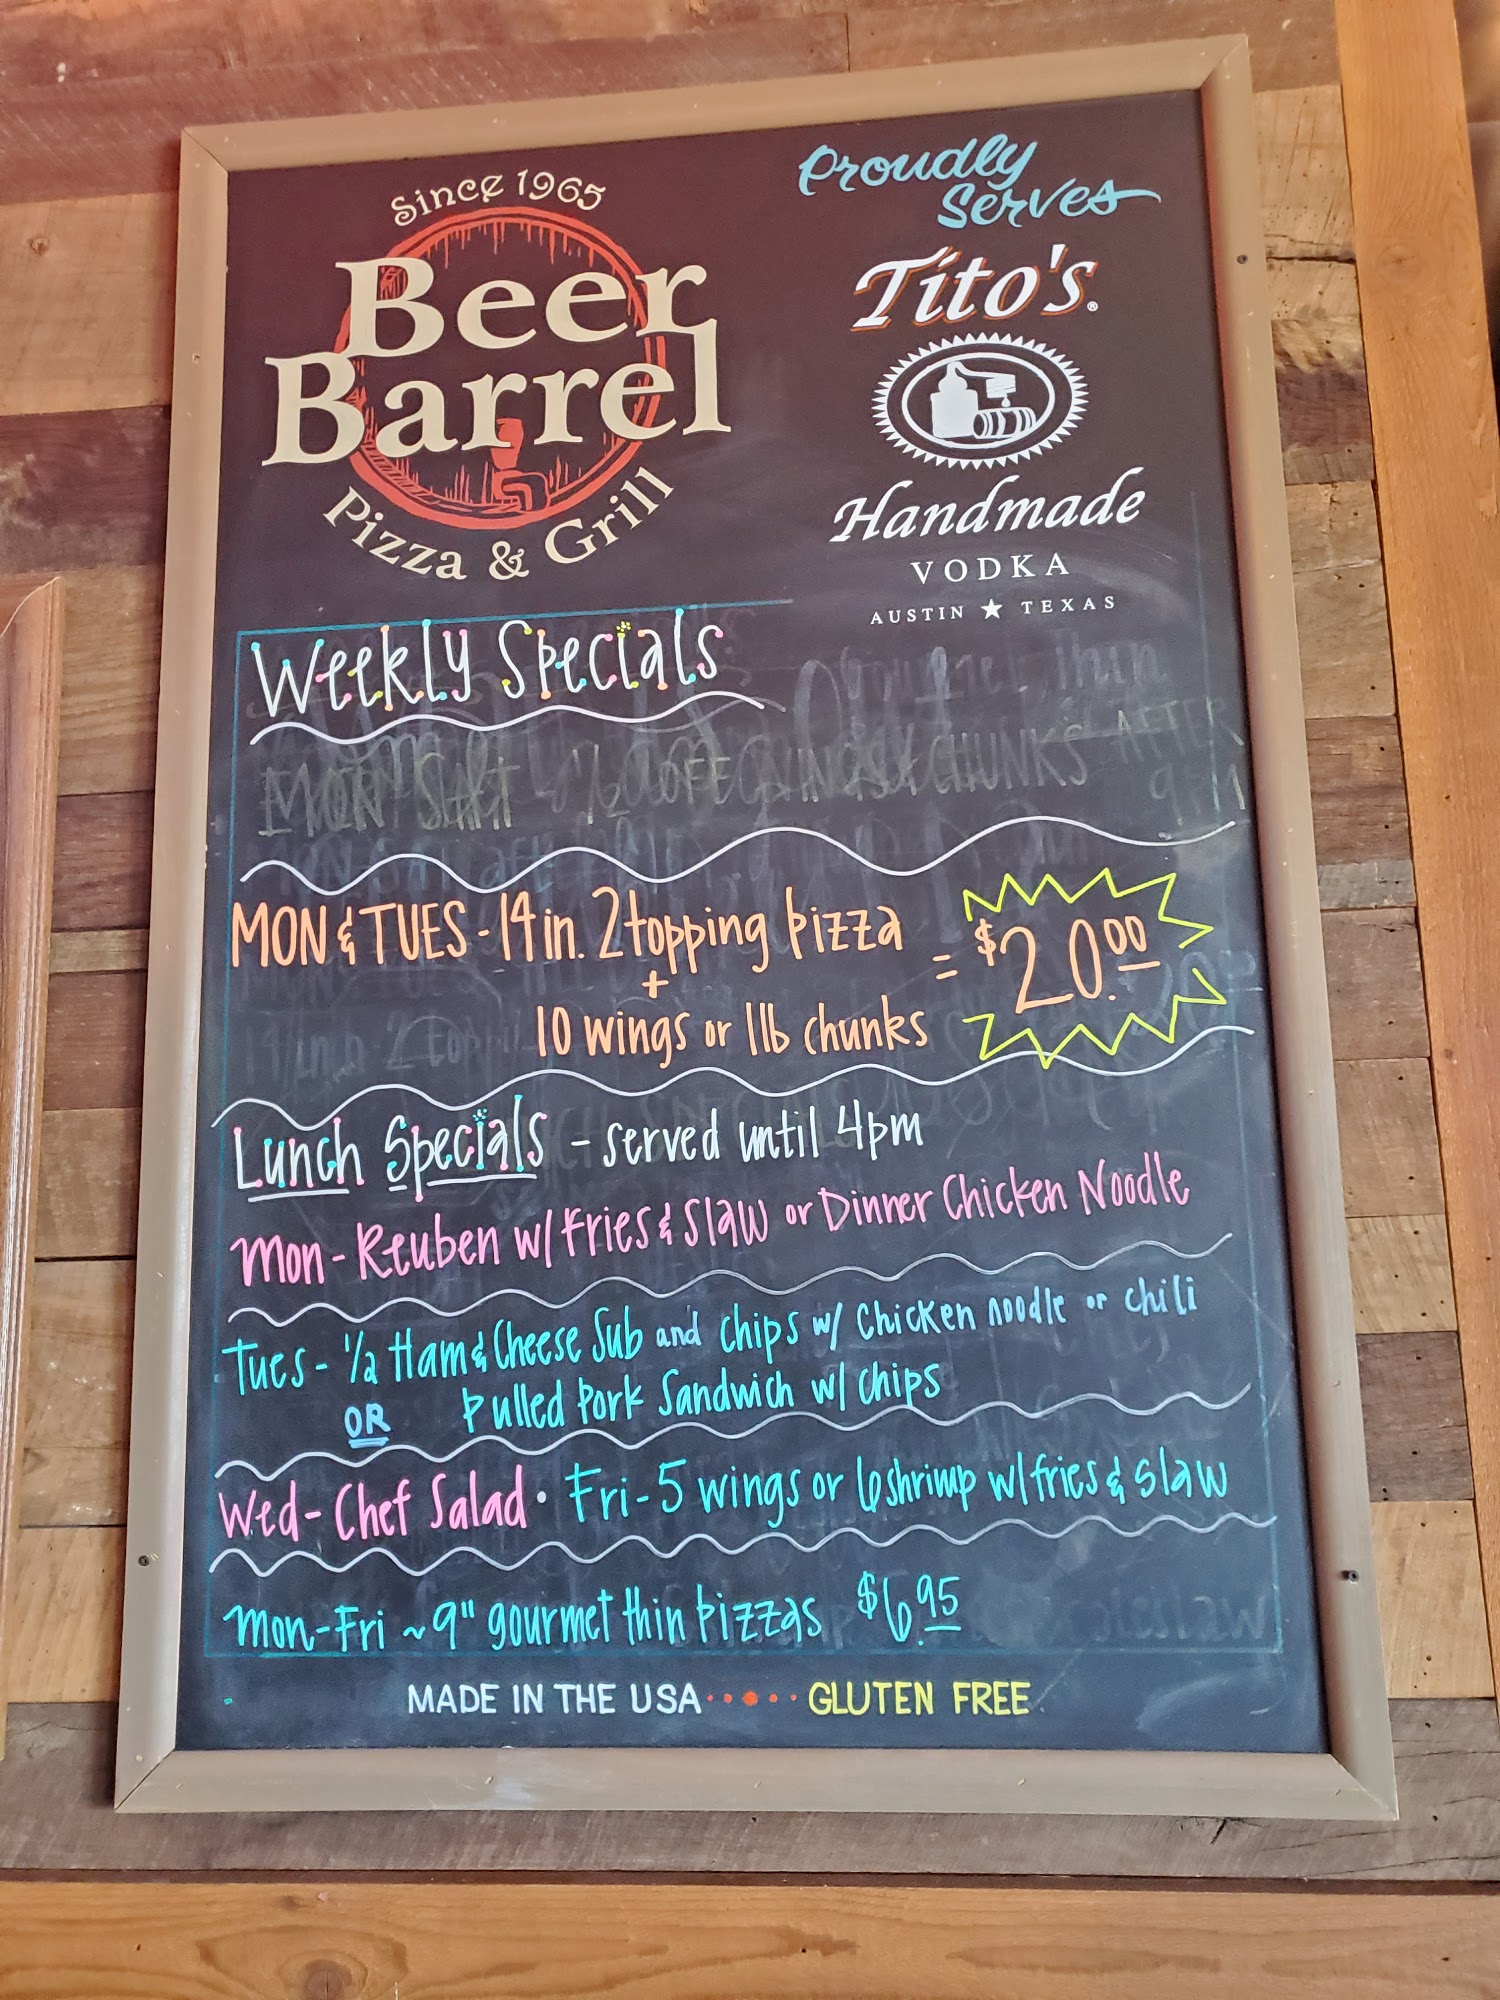 Since 1965
Beer
Barrel
Pizza & Grill
Proudly
Serves
Tito's®
Handmade
VODKA
AUSTIN ★ TEXAS
Weekly Specials
MON & TUES - 14 in. 2 topping pizza
+
10 wings or 1lb chunks
= $20.00
Lunch Specials - served until 4pm
Mon - Reuben w/ Fries & Slaw or Dinner Chicken Noodle
Tues - 1/2 Ham & Cheese Sub and chips w/ Chicken noodle or chili
OR Pulled Pork Sandwich w/ chips
Wed - Chef Salad • Fri - 5 wings or 6 shrimp w/ fries & slaw
Mon-Fri ~ 9" gourmet thin pizzas $6.95
MADE IN THE USA ••••• GLUTEN FREE